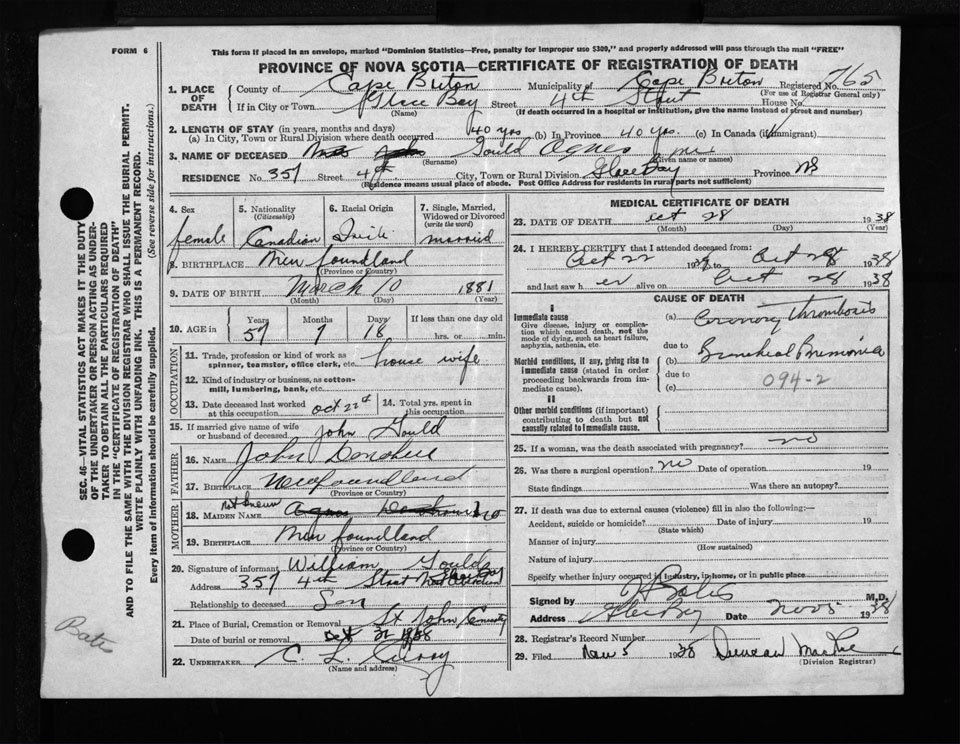 FORM 6
This form if placed in an envelope, marked "Dominion Statistics—Free, penalty for improper use $300," and properly addressed will pass through the mail "FREE"
PROVINCE OF NOVA SCOTIA—CERTIFICATE OF REGISTRATION OF DEATH
1. PLACE OF DEATH County of Cape Breton Municipality of Cape Breton Registered No. 765
(For use of Registrar General only)
If in City or Town Glace Bay Street 4th Street House No.
(Name) (If death occurred in a hospital or institution, give the name instead of street and number)
2. LENGTH OF STAY (in years, months and days)
(a) In City, Town or Rural Division where death occurred 40 yrs (b) In Province 40 yrs. (c) In Canada (if immigrant)
3. NAME OF DECEASED Gould Agnes
(Surname) (Given name or names)
RESIDENCE No. 357 Street 4th City, Town or Rural Division Glace Bay Province NS
(Residence means usual place of abode. Post Office Address for residents in rural parts not sufficient)
4. Sex female
5. Nationality (Citizenship) Canadian
6. Racial Origin
7. Single, Married, Widowed or Divorced (write the word) married
8. BIRTHPLACE New foundland
(Province or Country)
9. DATE OF BIRTH March 10 1881
(Month) (Day) (Year)
10. AGE in Years 57 Months 7 Days 18 If less than one day old hrs. or min.
OCCUPATION
11. Trade, profession or kind of work as spinner, teamster, office clerk, etc. house wife
12. Kind of industry or business, as cotton-mill, lumbering, bank, etc.
13. Date deceased last worked at this occupation Oct 22nd 14. Total yrs. spent in this occupation
15. If married give name of wife or husband of deceased John Gould
FATHER
16. NAME John
17. BIRTHPLACE Newfoundland
(Province or Country)
MOTHER
18. MAIDEN NAME Not known
19. BIRTHPLACE New foundland
(Province or Country)
20. Signature of informant William Gould
Address 357 4th Street Glace Bay
Relationship to deceased Son
21. Place of Burial, Cremation or Removal St John
Date of burial or removal Oct 31 1938
22. UNDERTAKER C. L.
(Name and address)
MEDICAL CERTIFICATE OF DEATH
23. DATE OF DEATH Oct 28 1938
(Month) (Day) (Year)
24. I HEREBY CERTIFY that I attended deceased from:
Oct 22 1938 to Oct 28 1938
and last saw h er alive on Oct 28 1938
CAUSE OF DEATH
I
Immediate cause
Give disease, injury or complication which caused death, not the mode of dying, such as heart failure, asphyxia, asthenia, etc.
(a) Coronory Thrombosis
due to
Morbid conditions, if any, giving rise to immediate cause (stated in order proceeding backwards from immediate cause).
(b) Bronchial Pneumonia
due to
(c) 094-2
II
Other morbid conditions (if important) contributing to death but not causally related to immediate cause.
25. If a woman, was the death associated with pregnancy? no
26. Was there a surgical operation? no Date of operation 19
State findings Was there an autopsy?
27. If death was due to external causes (violence) fill in also the following:—
Accident, suicide or homicide? Date of injury 19
(State which)
Manner of injury
(How sustained)
Nature of injury
Specify whether injury occurred in industry, in home, or in public place
Signed by M.D.
Address Glace Bay Date Nov 5 1938
28. Registrar's Record Number
29. Filed Nov 5 1938 Duncan
(Division Registrar)
SEC. 46—VITAL STATISTICS ACT MAKES IT THE DUTY
OF THE UNDERTAKER OR PERSON ACTING AS UNDER-
TAKER TO OBTAIN ALL THE PARTICULARS REQUIRED
IN THE "CERTIFICATE OF REGISTRATION OF DEATH"
AND TO FILE THE SAME WITH THE DIVISION REGISTRAR WHO SHALL ISSUE THE BURIAL PERMIT.
WRITE PLAINLY WITH UNFADING INK. THIS IS A PERMANENT RECORD.
Every item of information should be carefully supplied. (See reverse side for instructions.)